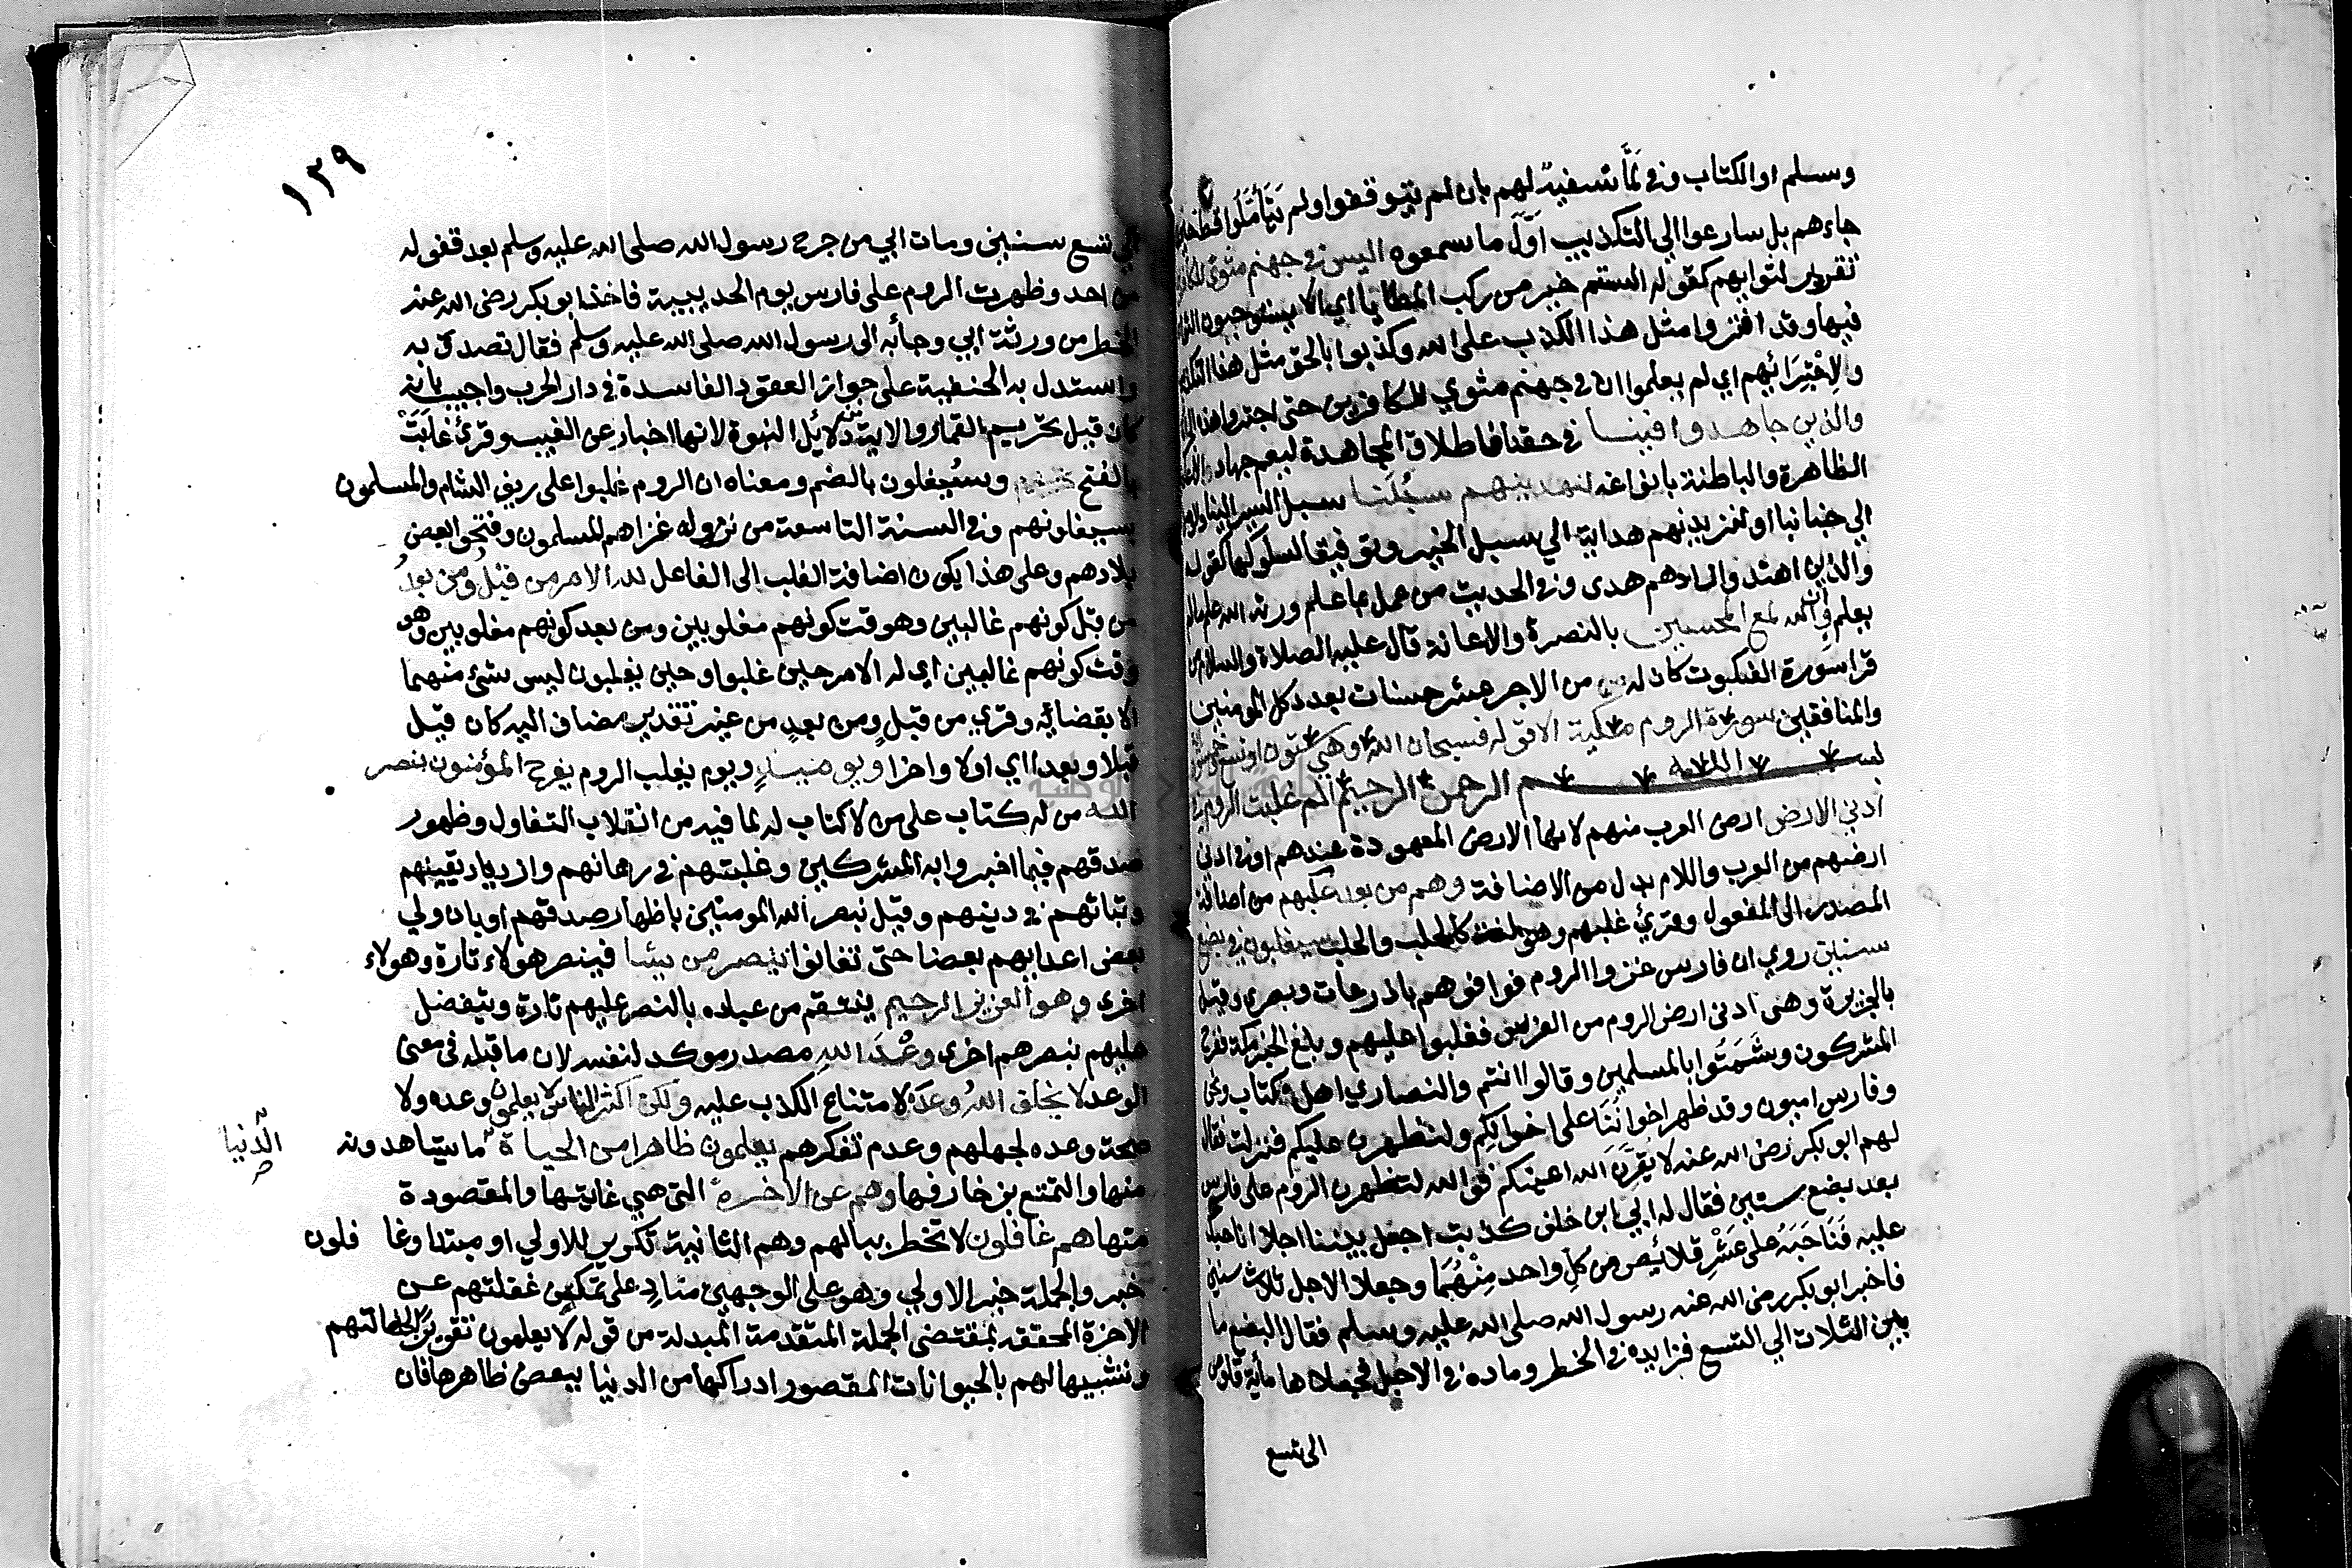 وسلم او الكتاب وفي لمّا تسفيه لهم بان لم يتوقفوا ولم يتأملوا قط حين
جاءهم بل سارعوا الي التكذيب اوّل ما سمعوه اليس في جهنم مثوى للكافرين
تقرير لثوابهم كقوله الستم خير من ركب المطايا اي الا يستوجبون الثواء
فيها وقد افتروا مثل هذا الكذب على الله وكذبوا بالحق مثل هذا التكذيب
ولاجترائهم اي لم يعلموا ان في جهنم مثوي للكافرين حتى اجتروا هذا
والذين جاهدوا فينا في حقنا فاطلاق المجاهدة ليعم جهاد
الظاهرة والباطنة بانواعه لنهدينهم سبُلَنا سبل السير الينا
الي جنابنا او لنزيدنهم هداية الي سبيل الخير وتوفيقا لسلوكها كقوله
والذين اهتدوا زادهم هدى وفي الحديث من عمل بما علم ورثه الله علم مالم
يعلم وان الله لمع المحسنين بالنصرة والاعانة قال عليه الصلاة والسلام من
قرا سورة العنكبوت كان له من الاجر عشر حسنات بعدد كل المومنين
والمنافقين سورة الروم مكية الا قوله فسبحان الله وهي ستون او تسع وخمسون
بسم الله الرحمن الرحيم الم غلبت الروم في
ادني الارض ارض العرب منهم لانها الارض المعهودة عندهم او في ادني
ارضهم من العرب واللام بدل من الاضافة وهم من بعد غلبهم من اضافة
المصدر الى المفعول وقري غلبهم وهي لغة كالجلب والحلب سيغلبون في بضع
سنين روي ان فارس غزوا الروم فوافوهم باذرعات وبصرى وقيل
بالجزيرة وهي ادنى ارض الروم من الفرس فغلبوا عليهم وبلغ الخبر مكة ففرح
المشركون وشَمَتُوا بالمسلمين وقالوا انتم والنصاري اهل كتاب ونحن
وفارس اميون وقد ظهر اخواننا على اخوانكم ولنظهرن عليكم فنزلت فقال
لهم ابو بكر رضى الله عنه لا يقرّن الله اعينكم فوالله لتظهرن الروم على فارس
بعد بضع سنين فقال له ابي ابن خلف كذبت اجعل بيننا اجلا اناحبك
عليه فناحبه على عشر قلائص من كل واحد منهما وجعلا الاجل ثلاث سنين
فاخبر ابو بكر رضى الله عنه رسول الله صلى الله عليه وسلم فقال البضع ما
بين الثلاث الي التسع فزايده في الخطر وماده في الاجل فجعلاها مأية قلوص
الى تسع
١٣٩
الي تسع سنين ومات ابي من جرح رسول الله صلى الله عليه وسلم بعد قفوله
من احد وظهرت الروم على فارس يوم الحديبية فاخذ ابو بكر رضى الله عنه
الخطر من ورثة ابي وجأبه الى رسول الله صلى الله عليه وسلم فقال تصدق به
واستدل به الحنفية على جواز العقود الفاسدة في دار الحرب واجيب بانه
كان قبل تحريم القمار والاية من دلائل النبوة لانها اخبار عن الغيب وقرئ غَلَبَتْ
بالفتح وسيُغلبون بالضم ومعناه ان الروم غلبوا على ريف الشام والمسلمون
سيغلبونهم وفي السنة التاسعة من نزوله غزاهم المسلمون وفتحوا بعض
بلادهم وعلى هذا يكون اضافة الغلب الى الفاعل لله الامر من قبلُ ومن بعدُ
من قبل كونهم غالبين وهو وقت كونهم مغلوبين ومن بعد كونهم مغلوبين وهو
وقت كونهم غالبين اي له الامر حين غلبوا وحين يغلبون ليس شئ منهما
الا بقضائه وقري من قبلٍ ومن بعدٍ من غير تقدير مضاف اليه كان قيل
قبلا وبعدا اي اولا واخرا ويومئذٍ ويوم يغلب الروم يفرح المؤمنون بنصر
الله من له كتاب على من لا كتاب له لما فيه من انقلاب التفاول وظهور
صدقهم فيما اخبروا به المشركين وغلبتهم في رهانهم وازدياد يقينهم
وثباتهم في دينهم وقيل نبصر الله المومنين باظهار صدقهم او بان ولي
بعض اعدايهم بعضا حتى تفانوا ينصر من يشا فينصر هولاء تارة وهولاء
اخرى وهو العزيز الرحيم ينتقم من عباده بالنصر عليهم تارة ويتفضل
عليهم بنصرهم اخرى وعْدَ الله مصدر موكد لنفسه لان ما قبله في معنى
الوعد لا يخلف الله وعدَه لامتناع الكذب عليه ولكن اكثر الناس لا يعلمون وعده ولا
صحة وعده لجهلهم وعدم تفكرهم يعلمون ظاهرا من الحياة ما يشاهدونه
الدنيا
منها والتمتع بزخارفها وهم عن الاخرة التي هي غايتها والمقصودة
منها هم غافلون لا تخطر ببالهم وهم الثانية تكرير للاولي او مبتدا وغا فلون
خبره والجملة خبر الاولي وهو على الوجهين مناد على تمكن غفلتهم عن
الاخرة المحققه لمقتضى الجملة المتقدمة المبدلة من قوله لا يعلمون تقريرا لجهالتهم
وتشبيها لهم بالحيوانات المقصور ادراكها من الدنيا ببعض ظاهرها فان